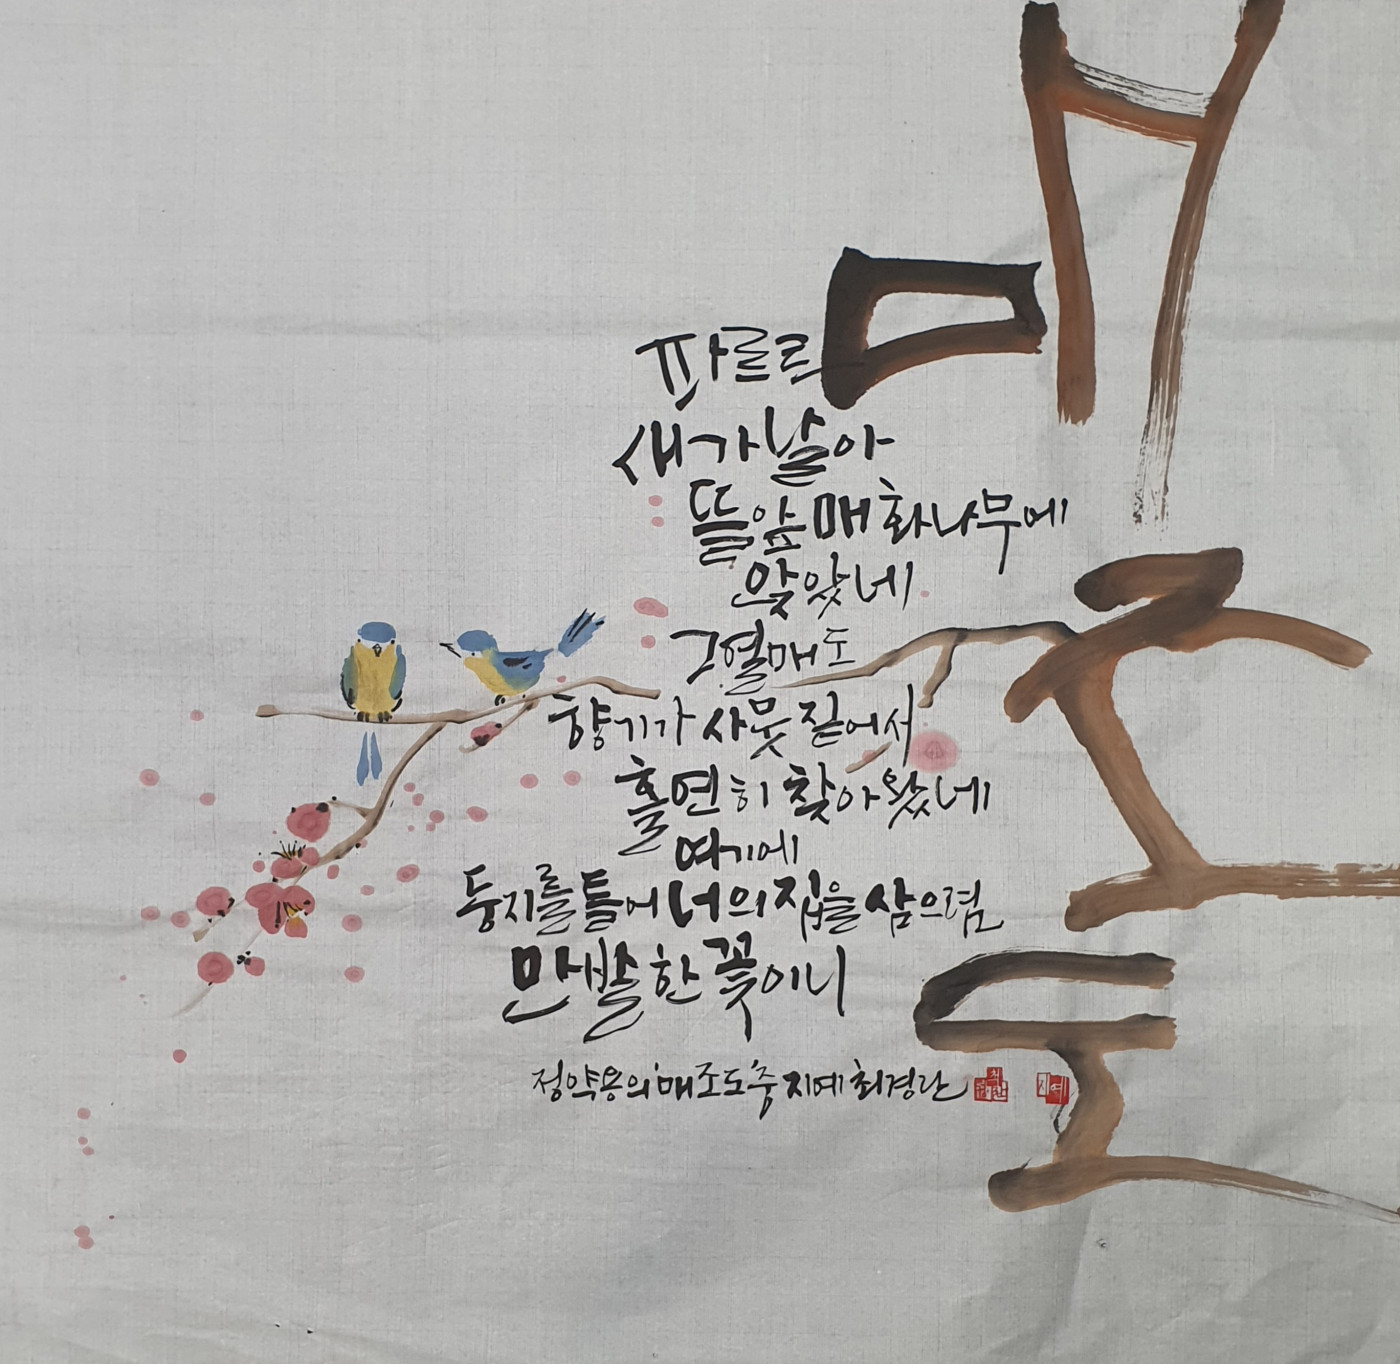 매조도
파르르
새가 날아
뜰 앞 매화나무에
앉았네
그 열매도
향기가 사뭇 짙어서
홀연히 찾아왔네
여기에
둥지를 틀어 너의 집을 삼으렴
만발한 꽃이니
정약용의 '매조도' 중 지예 최경란
지예